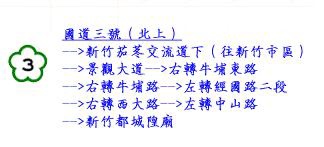 國道三號（北上）
3
-->新竹茄苳交流道下（往新竹市區）
-->景觀大道-->右轉牛埔東路
-->右轉牛埔路-->左轉經國路二段
-->右轉西大路-->左轉中山路
-->新竹都城隍廟